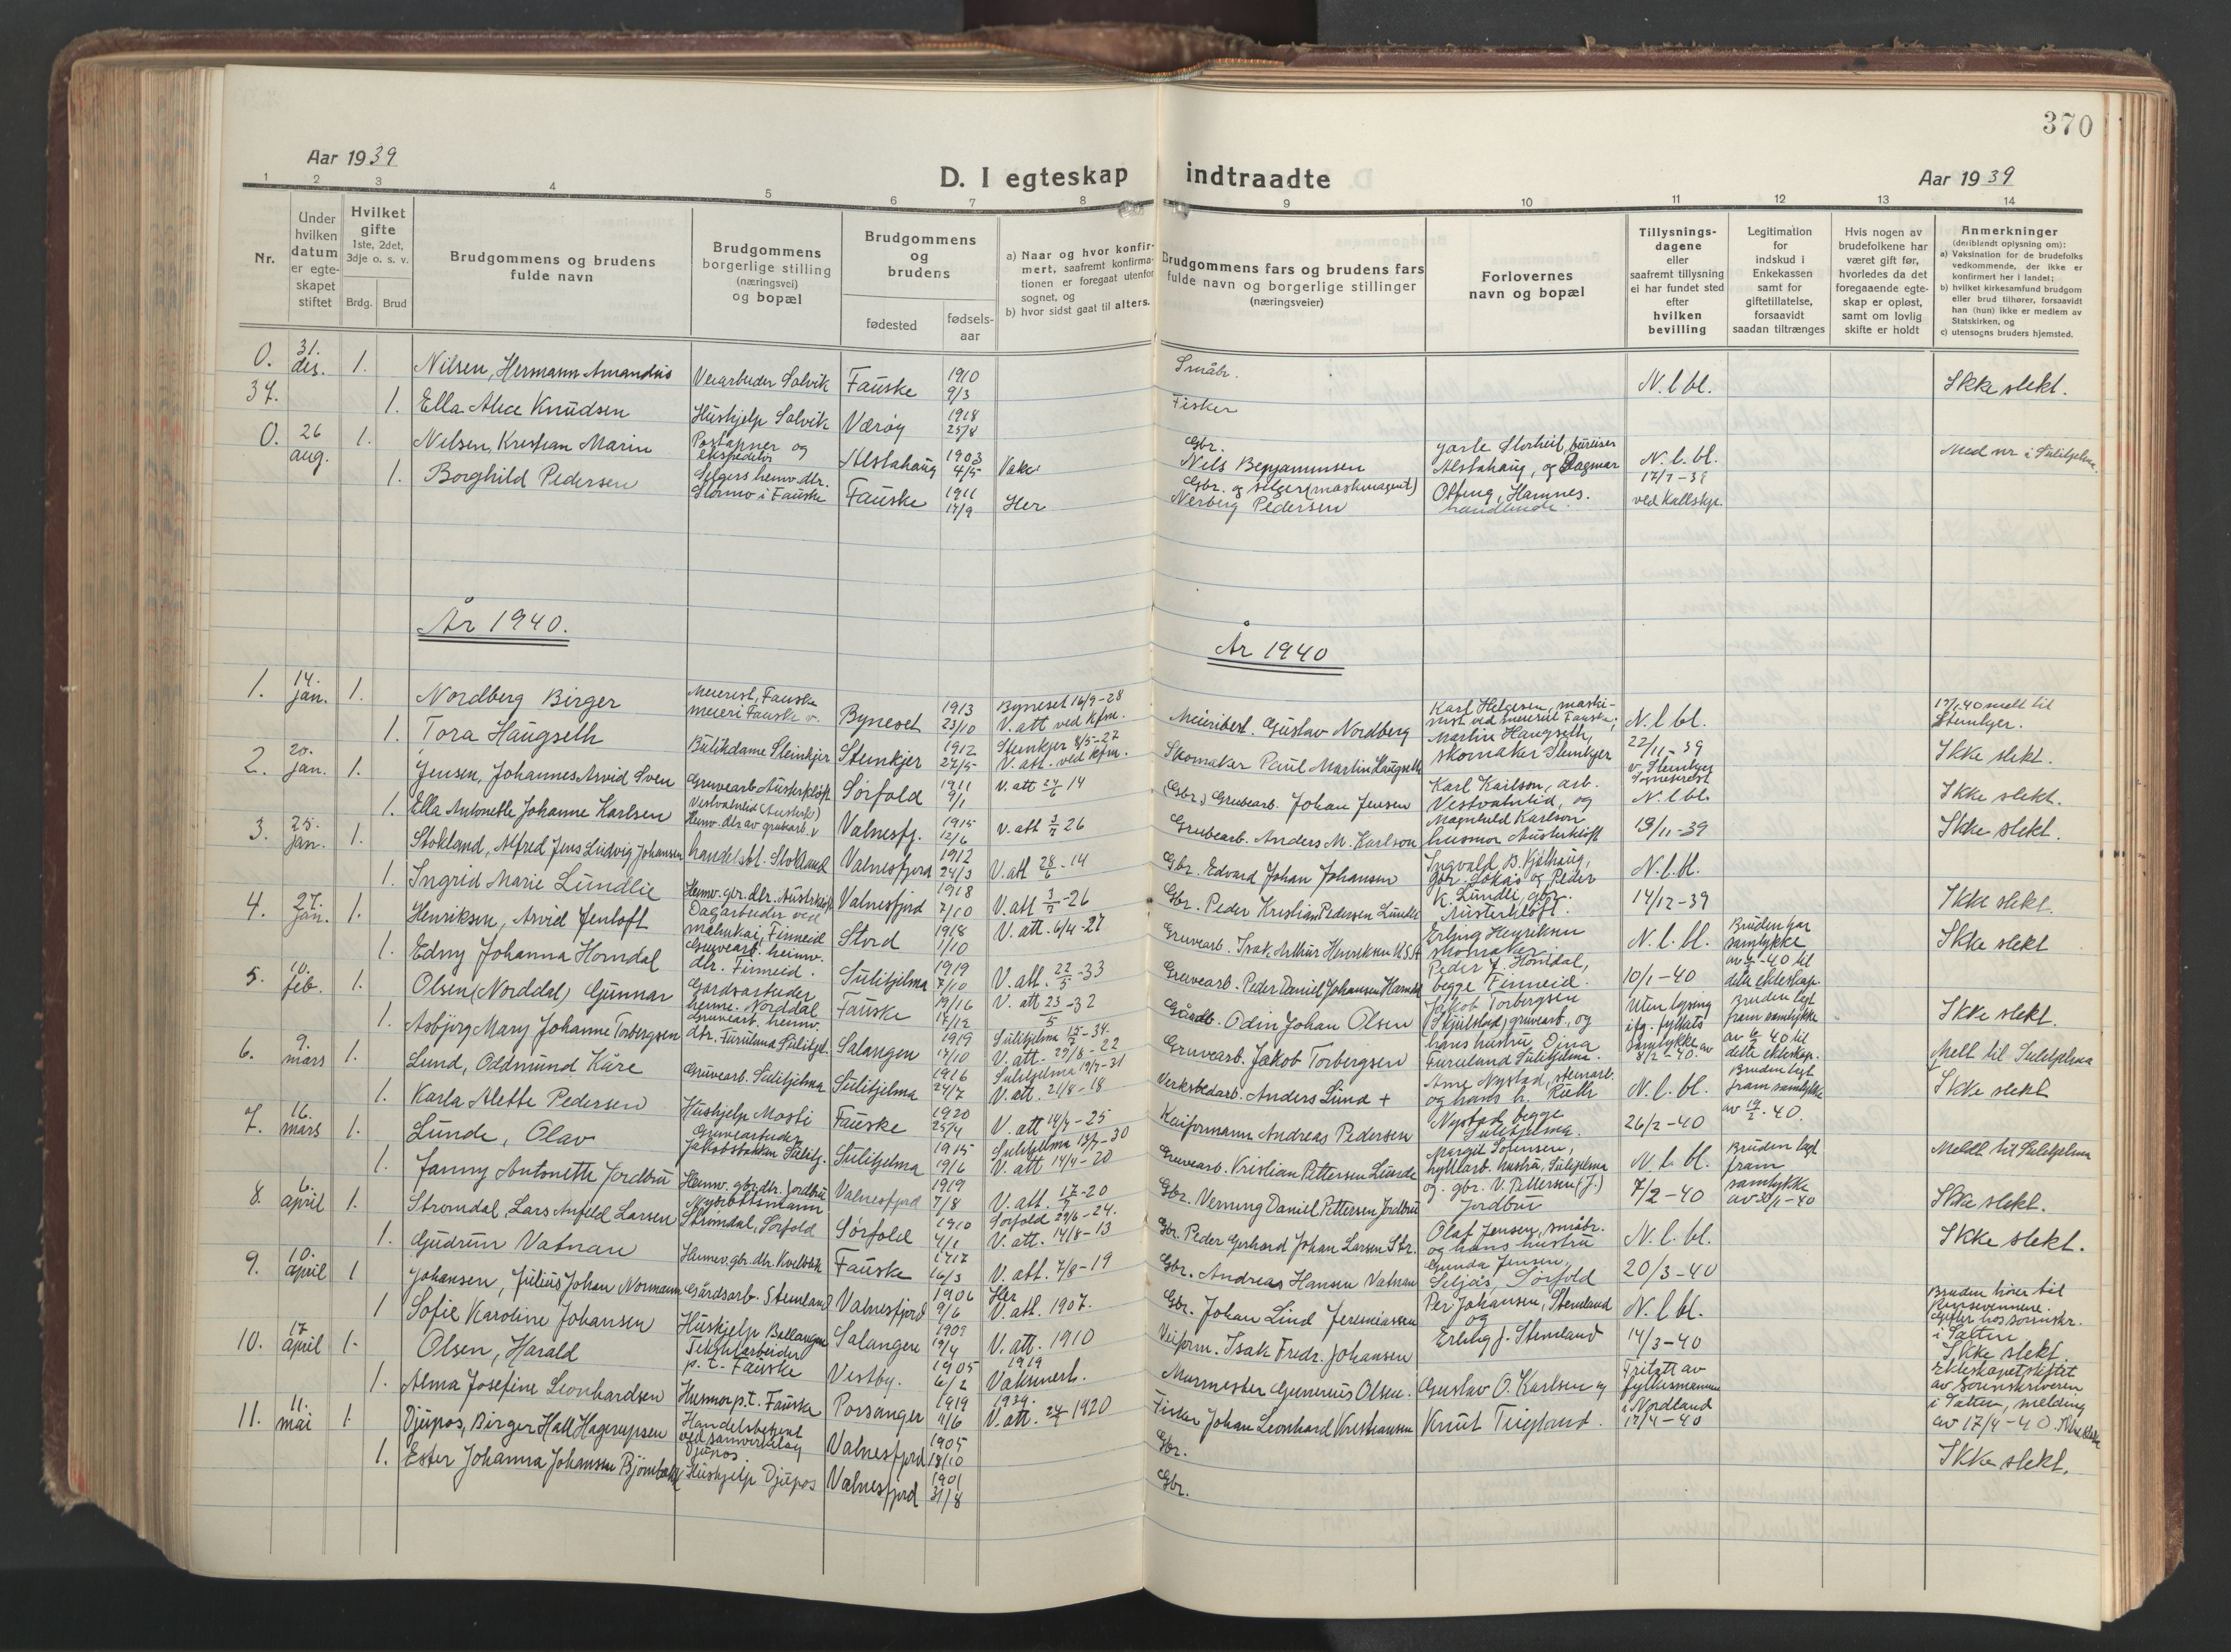 370
Aar 1939
D. I egteskap indtraadte
Aar 1939
1 2 3 4 5 6 7 8 9 10 11 12 13 14
Nr.
Under hvilken datum er egte- skapet stiftet
Hvilket gifte 1ste, 2det, 3dje o. s. v.
Brdg. Brud
Brudgommens og brudens fulde navn
Brudgommens borgerlige stilling (næringsvei) og bopæl
Brudgommens og brudens
fødested fødsels- aar
a) Naar og hvor konfir- mert, saafremt konfirma- tionen er foregaat utenfor sognet, og
b) hvor sidst gaat til alters.
Brudgommens fars og brudens fars fulde navn og borgerlige stillinger (næringsveier)
Forlovernes navn og bopæl
Tillysnings- dagene eller saafremt tillysning ei har fundet sted efter hvilken bevilling
Legitimation for indskud i Enkekassen samt for giftetillatelse, forsaavidt saadan tiltrænges
Hvis nogen av brudefolkene har været gift før, hvorledes da det foregaaende egte- skap er opløst, samt om lovlig skifte er holdt
Anmerkninger (deriblandt oplysning om):
a) Vaksination for de brudefolks vedkommende, der ikke er konfirmert her i landet;
b) hvilket kirkesamfund brudgom eller brud tilhører, forsaavidt han (hun) ikke er medlem av Statskirken, og
c) utensogns bruders hjemsted.
0. 31. des. 1. Nilsen, Hermann Amandus Veiarbeider Solvik Fauske 1910 9/3 Småbr. N. l. bl. Ikke slekt.
37. 1. Ella Alice Knudsen Hushjelp Solvik Værøy 1918 25/8 Fisker
0. 26 aug. 1. Nilsen, Kristian Marin Poståpner og ekspeditør Alstahaug 1903 4/5 Gbr. Nils Benjaminsen Alstahaug, og Dagmar N. l. bl. 17/7-39 Med nr i Sulitjelma
1. Borghild Pedersen Selgers hemv. dtr. Stormo i Fauske Fauske 1911 17/9 Her Gbr. og selger (maskinagent) Nerberg Pedersen Hamnes. handlende. ved Kallskpr.
År 1940.
År 1940
1. 14. jan. 1. Nordberg Birger Meierist, Fauske meieri Fauske Byneset 1913 23/10 Byneset 16/9-28 V. att ved kfm. Meieribest. Gustav Nordberg Karl Helgesen, maski- nist ved meieriet Fauske; N. l. bl. 17/1.40 melt til Steinkjer.
1. Tora Haugseth Butikdame Steinkjer Steinkjer 1912 27/5 Steinkjer 8/5-27 V. att. ved kfm. Skomaker Paul Martin Haugseth Martin Haugseth, skomaker Steinkjer 22/11-39 v. Steinkjer Ikke slekt.
2. 20. jan. 1. Jensen, Johannes Arvid Sven Gruvearb. Austerkløft Sørfold 1911 9/1 V. att 24/6 14 (Gbr.) Grubearb. Johan Jensen Karl Karlson, arb. Vestvatnlid, og N. l. bl. Ikke slekt.
1. Ella Antonette Johanne Karlsen Vestvatnlid Hemv. dtr av grubearb. Valnesfj. 1915 12/6 V. att 3/7 26 Grubearb. Anders M. Karlson Magnhild Karlson husmor Austerkløft 13/11-39 Ikke slekt.
3. 25. jan. 1. Stokland, Alfred Jens Ludvig Johansen handelsbl. Stokland Valnesfjord 1912 24/3 V. att 28/6-14 Gbr. Edvard Johan Johansen Ingvald B. Kjelhaug, gbr. Løkås og Peder N. l. bl.
1. Ingrid Marie Lundlie Hemv. gbr. dtr. Austerkløft Valnesfjord 1918 7/10 V. att 3/7-26 Gbr. Peder Kristian Pedersen Lundli K. Lundli gbr. Austerkløft. 14/12-39 Ikke slekt.
4. 27. jan. 1. Henriksen, Arvid Jentoft Dagarbeider ved malmkai, Finneid Stord 1918 1/10 V. att. 6/4-27 Gruvearb. Isak Arthur Henriksen U.S.A Erling Henriksen skomaker N. l. bl. Bruden har samtykke Ikke slekt
1. Edny Johanna Homdal Gruvearb. heimv. dtr. Finneid. Sulitjelma 1919 7/10 V. att. 22/5-33 Gruvearb. Peder Daniel Johansen Homdal Peder J. Homdal, begge Finneid. 10/1-40 dette ekteskap.
5. 10. feb. 1. Olsen (Norddal) Gunnar Gårdsarbeider heime. Norddal Fauske 1916 17/12 V. att 23/5-32 Gårdb. Odin Johan Olsen Jakob Torbergsen (Skjulstad) gruvearb., og Uten lysing Bruden lagt fram samtykke Ikke slekt.
1. Asbjørg Mary Johanne Torbergsen Gruvearb. heimv. dtr. Furulund Sulitjel. Salangen 1919 17/10 V. att. 29/8-22 Gruvearb. Jakob Torbergsen hans hustru, Dina Furulund Sulitjelma. 8/2-40. dette ekteskap.
6. 9. mars 1. Lund, Oldmund Kåre Gruvearb. Sulitjelma Sulitjelma 1916 24/7 Sulitjelma 19/7-31 V. att. 21/8-18 Verksbedarb. Anders Lund + Arne Nystad, stenarb. og hans h. Ruth N. l. bl. Bruden lagt fram samtykke Melt til Sulitjelma Ikke slekt
1. Karla Alette Pedersen Hushjelp Mosti Fauske 1920 25/4 V. att 14/7-25 Kaiformann Andreas Pedersen Nystad begge Sulitjelma. 26/2-40 av 19/2-40.
7. 16. mars 1. Lunde, Olav Gruvearbeider Jakobsbakken Sulitj. Sulitjelma 1915 19/6 Sulitjelma 13/7-30 V. att 14/4-20 Gruvearb. Kristian Pettersen Lunde Margit Sørensen, hyttarb. hustru, Sulitjelma N. l. bl. Bruden lagt fram Meldt til Sulitjelma
1. Janny Antonette Jordbru Heimv. gbr. dtr. Jordbru Valnesfjord 1919 7/8 V. att. 17/7-20 Gbr. Verning Daniel Pettersen Jordbru og gbr. V. Pettersen (J.) Jordbru 7/2-40 samtykke av 30/1-40 Ikke slekt.
8. 6. april 1. Strømdal, Lars Anfeld Larsen Strømdal, Sørfold Sørfold 1910 4/1 Sørfold 29/6-24. V. att. 14/8-13 Gbr. Peder Gerhard Johan Larsen Str. Olaf Jensen, småbr. og hans hustru N. l. bl. Ikke slekt.
1. Gudrun Vatnan Heimev. gbr. dtr. Kvelblik Fauske 1917 16/3 V. att. 7/8-19 Gbr. Andreas Hansen Vatnan Gunda Jensen, Seljås, Sørfold 20/3-40
9. 10. april 1 Johansen, Julius Johan Normann Gårdsarb. Stemland Valnesfjord 1906 9/6 Her V. att. 1907. Gbr. Johan Lind Jeremiassen Per Johansen, Stemland og N. l. bl. Bruden hører til
1 Sofie Karoline Johansen Hushjelp Ballangen Salangen 1909 19/4 V. att. 1910 Veiform. Isak Fredr. Johansen Erling J. Stemland 14/3-40 i Salten Ikke slekt.
10. 17 april 1. Olsen, Harald p. t. Fauske Vestby. 1905 6/2 1919 Murmester Gunerius Olsen. Gustav O. Karlsen og Fritatt av fylkesmannen Ekteskapet stiftet av sorenskriveren
1. Alma Josefine Leonhardsen Husmor p.t. Fauske Porsanger 1919 9/6 1934. V. att. 24/7 1920 Fisker Johan Leonhard Kristiansen Knut Teigland. i Nordland 17/4-40 i Salten, melding av 17/4-40.
11. 11. mai 1. Djupos, Birger Hall Hagerupsen Handelsbetjent ved samvirkelag Djupos Valnesfjord 1905 18/10 Gbr. Ikke slekt.
1. Ester Johanna Johansen Bjørnbakk Hushjelp Djupos Valnesfjord 1901 31/8 Gbr.